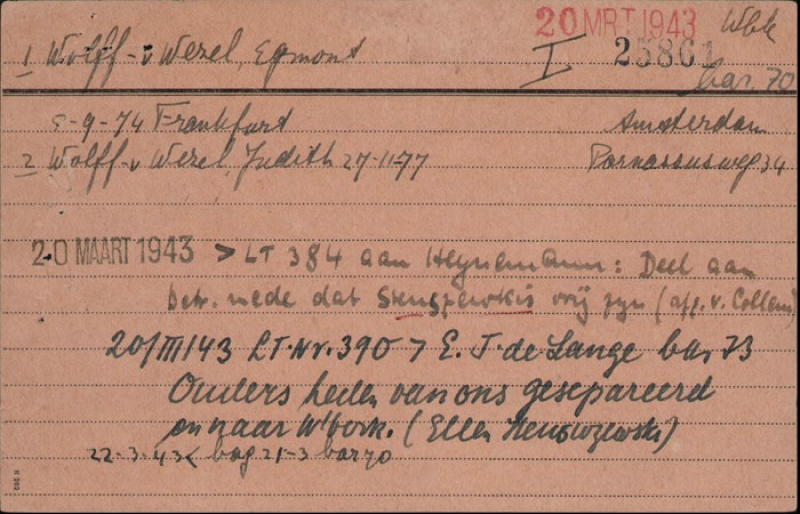 20 MRT 1943 Wbk
1 Wolff-v Wezel, Egmont I 25861
bar. 70
-9-74 Frankfurt Amsterdam
2 Wolff-v Wezel, Judith 27-11-77 Parnassusweg 34
20 MAART 1943 > LT 384 aan Heynemann: Deel aan
betr. mede dat vrij zyn (aff. v. Collem)
20/III/43 LT.Nr.390 > E. J. de Lange bar 73
Ouders heden van ons gesepareerd
en naar W'bork. (Ellen
22-3-43 < bag 21-3 bar 70